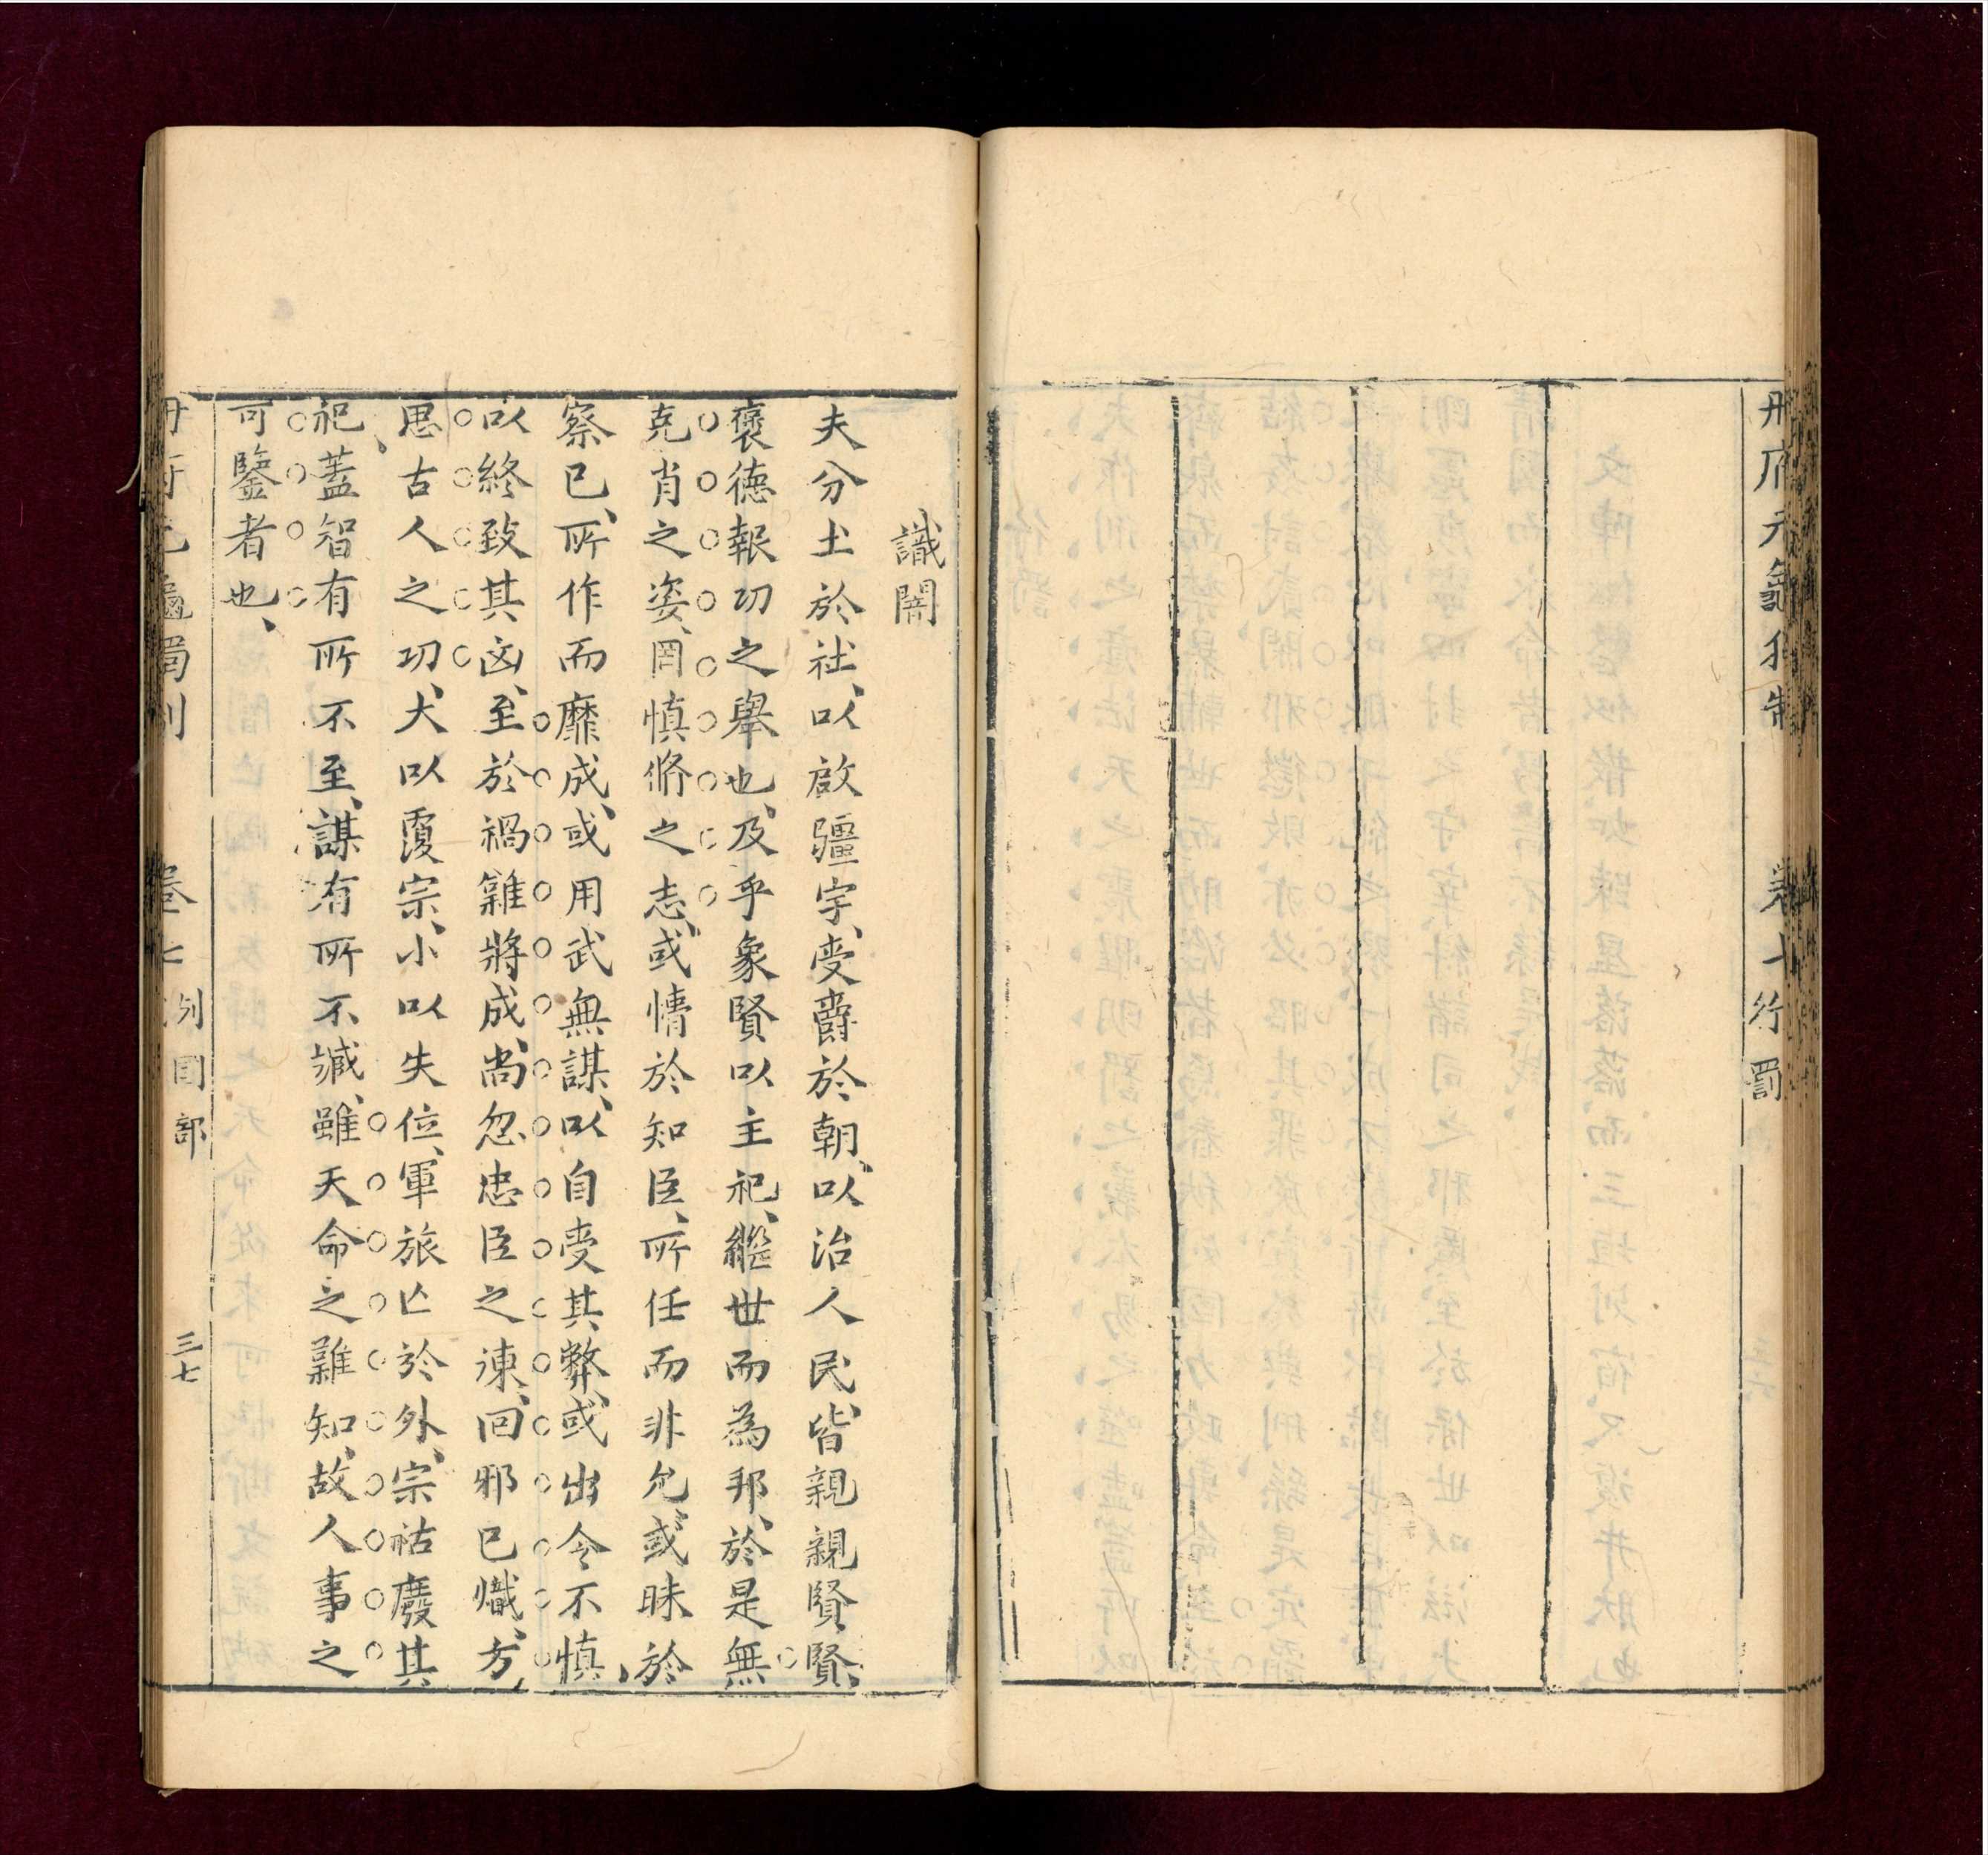 冊府元龜獨制
卷七
行罰
識闇
夫分土於社、以啟疆宇、受爵於朝、以治人民、皆親親賢賢、
褒德報功之舉也、及乎象賢以主祀、繼世而為邦、於是無
克肖之姿、罔慎脩之志、或情於知臣、所任而非允、或昧於
察已、所作而靡成、或用武無謀、以自受其弊、或出令不慎、
以終致其凶、至於禍難將成、尚忽忠臣之諫、回邪已熾、方
思古人之功、大以覆宗、小以失位、軍旅亡於外、宗祏廢其
祀、蓋智有所不至、謀有所不臧、雖天命之難知、故人事之
可鑒者也、
冊府元龜獨制
卷七
列國部
三七